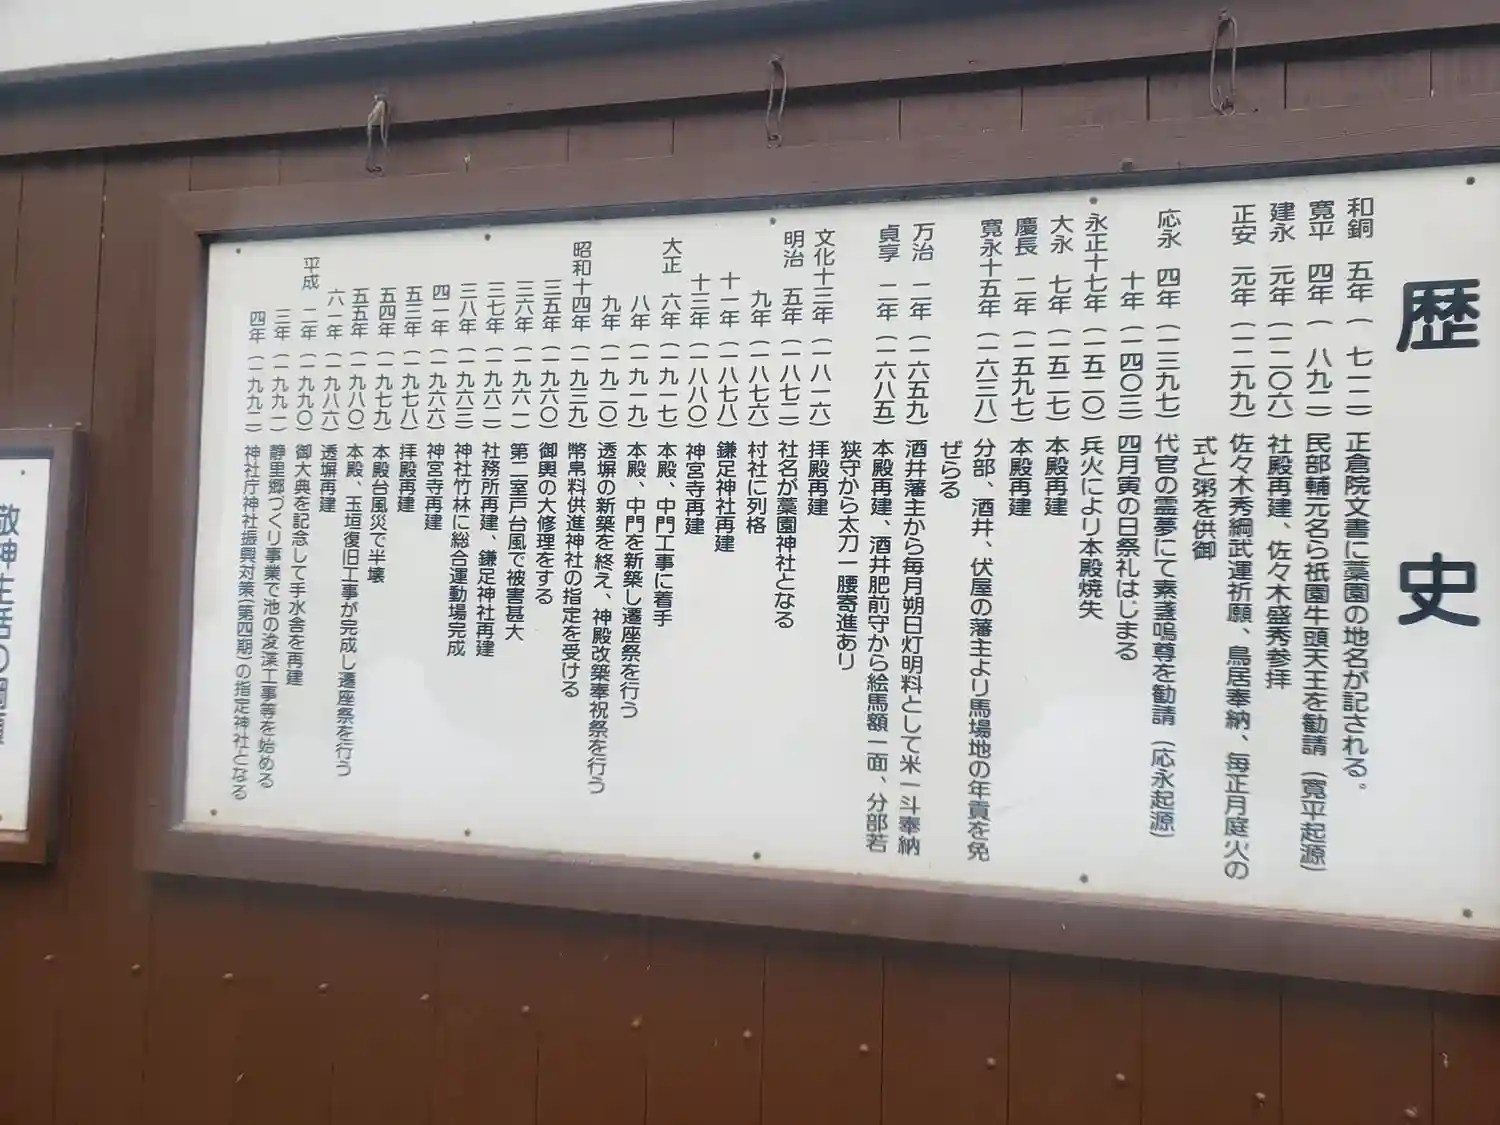 歴史
和銅 五年（ 七一二）正倉院文書に藁園の地名が記される。
寛平 四年（ 八九二）民部輔元名ら祇園牛頭天王を勧請（寛平起源）
建永 元年（一二〇六）社殿再建、佐々木盛秀参拝
正安 元年（一二九九）佐々木秀綱武運祈願、鳥居奉納、毎正月庭火の
式と粥を供御
応永 四年（一三九七）代官の霊夢にて素盞嗚尊を勧請（応永起源）
十年（一四〇三）四月寅の日祭礼はじまる
永正十七年（一五二〇）兵火により本殿焼失
大永 七年（一五二七）本殿再建
慶長 二年（一五九七）本殿再建
寛永十五年（一六三八）分部、酒井、伏屋の藩主より馬場地の年貢を免
ぜらる
万治 二年（一六五九）酒井藩主から毎月朔日灯明料として米一斗奉納
貞享 二年（一六八五）本殿再建、酒井肥前守から絵馬額一面、分部若
狭守から太刀一腰寄進あり
文化十三年（一八一六）拝殿再建
明治 五年（一八七二）社名が藁園神社となる
九年（一八七六）村社に列格
十一年（一八七八）鎌足神社再建
十三年（一八八〇）神宮寺再建
大正 六年（一九一七）本殿、中門工事に着手
八年（一九一九）本殿、中門を新築し遷座祭を行う
九年（一九二〇）透塀の新築を終え、神殿改築奉祝祭を行う
昭和十四年（一九三九）幣帛料供進神社の指定を受ける
三五年（一九六〇）御輿の大修理をする
三六年（一九六一）第二室戸台風で被害甚大
三七年（一九六二）社務所再建、鎌足神社再建
三八年（一九六三）神社竹林に総合運動場完成
四一年（一九六六）神宮寺再建
五三年（一九七八）拝殿再建
五四年（一九七九）本殿台風災で半壊
五五年（一九八〇）本殿、玉垣復旧工事が完成し遷座祭を行う
六一年（一九八六）透塀再建
平成 二年（一九九〇）御大典を記念して手水舎を再建
三年（一九九一）静里郷づくり事業で池の浚渫工事等を始める
四年（一九九二）神社庁神社振興対策（第四期）の指定神社となる
敬神生活の綱領